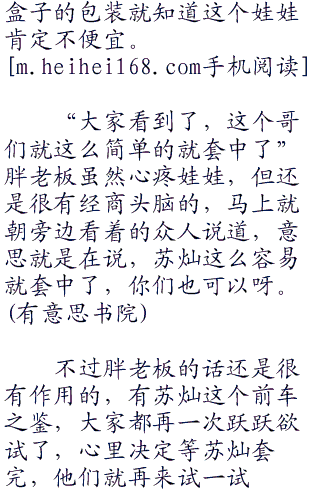 盒子的包装就知道这个娃娃
肯定不便宜。
[m.heihei168.com手机阅读]
“大家看到了，这个哥
们就这么简单的就套中了”
胖老板虽然心疼娃娃，但还
是很有经商头脑的，马上就
朝旁边看着的众人说道，意
思就是在说，苏灿这么容易
就套中了，你们也可以呀。
(有意思书院)
不过胖老板的话还是很
有作用的，有苏灿这个前车
之鉴，大家都再一次跃跃欲
试了，心里决定等苏灿套
完，他们就再来试一试